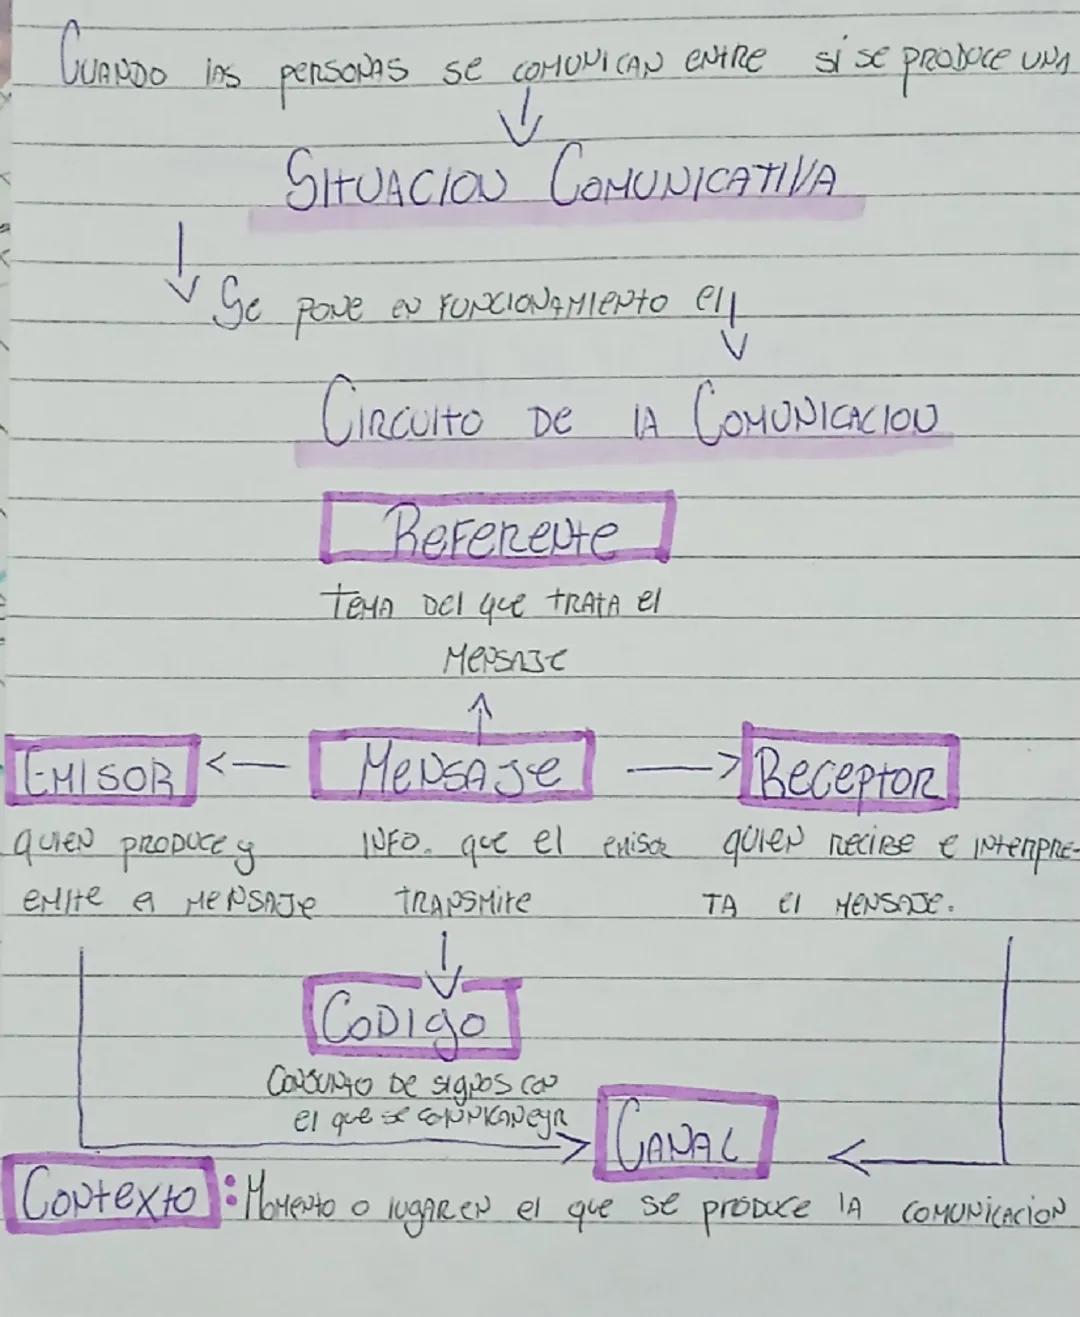 Cuando las personas se comunican entre sí se produce una
Situacion Comunicativa
Se pone en funcionamiento el
Circuito de la Comunicacion
Referente
tema del que trata el
mensaje
Emisor Mensaje Receptor
quien produce y info. que el emisor quien recibe e interpre-
emite el mensaje transmite ta el mensaje.
Codigo
Conjunto de signos con
el que se comunican e y r
Canal
Contexto: Momento o lugar en el que se produce la comunicacion